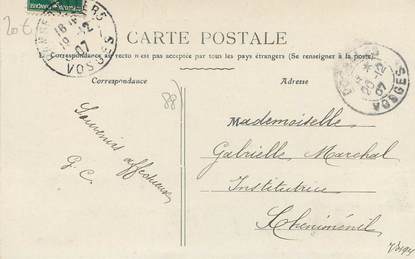 20€
18 12
07
VOSGES
CARTE POSTALE
La Correspondance au recto n'est pas acceptée par tous les pays étrangers (Se renseigner à la poste).
Correspondance
Adresse
20 12
07
VOSGES
88
Souvenirs affectueux
G. C.
Mademoiselle
Gabrielle Marchal
Institutrice
Cheniménil